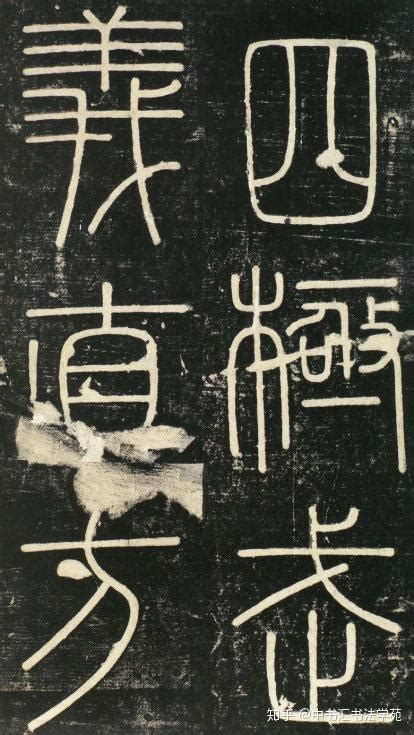 四極武
義直方
知乎 @中书汇书法学苑